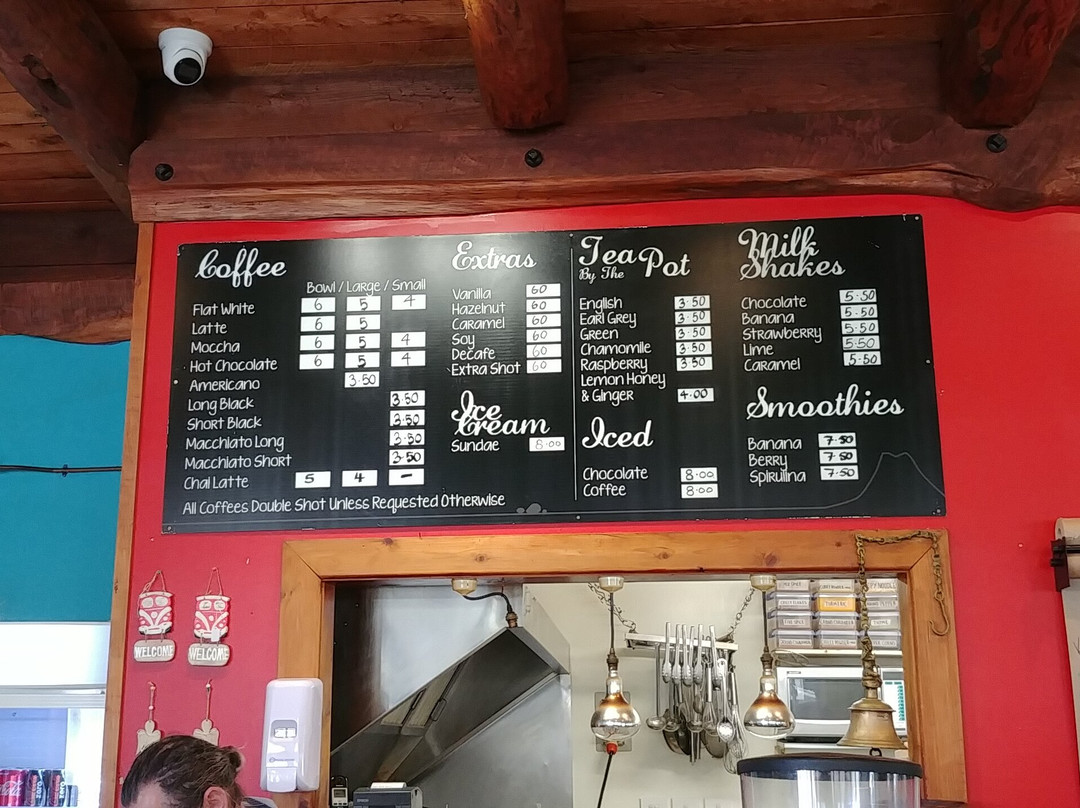 Coffee
Bowl / Large / Small
Flat White 6 5 4
Latte 6 5
Moccha 6 5 4
Hot Chocolate 6 5 4
Americano 3.50
Long Black 3.50
Short Black 3.50
Macchiato Long 3.50
Macchiato Short 3.50
Chai Latte 5 4 -
All Coffees Double Shot Unless Requested Otherwise
Extras
Vanilla 60
Hazelnut 60
Caramel 60
Soy 60
Decafe 60
Extra Shot 60
Ice
Cream
Sundae 8.00
Tea
By The Pot
English 3.50
Earl Grey 3.50
Green 3.50
Chamomile 3.50
Raspberry 3.50
Lemon Honey
& Ginger 4.00
Iced
Chocolate 8.00
Coffee 8.00
Milk
Shakes
Chocolate 5.50
Banana 5.50
Strawberry 5.50
Lime 5.50
Caramel 5.50
Smoothies
Banana 7.50
Berry 7.50
Spirulina 7.50
WELCOME
WELCOME
TURMERIC